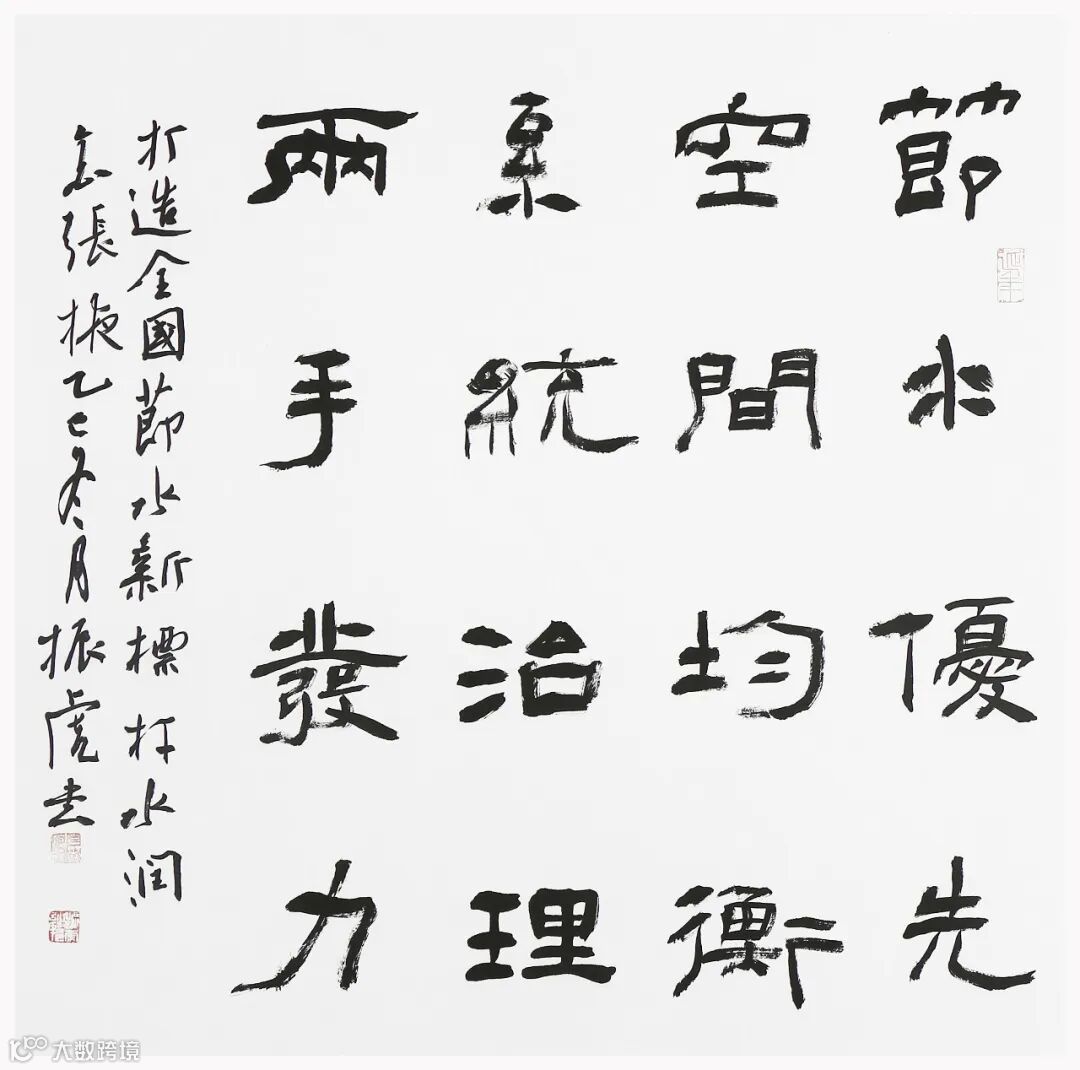 節水優先
空間均衡
系統治理
兩手發力
打造全國節水新標杆水润
金張掖乙巳冬月振虎书
大数跨境